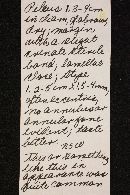 Pileus 1.3-9cm
in diam, glabrous,
dry; margin
with a slight
crenate sterile
band; lamellae
close; stipe
1.2-5cm x 1.5-4mm,
often eccentric,
no annulus or
annular zone
evident; taste
bitter.
This or something
like this in
appearance was
quite common